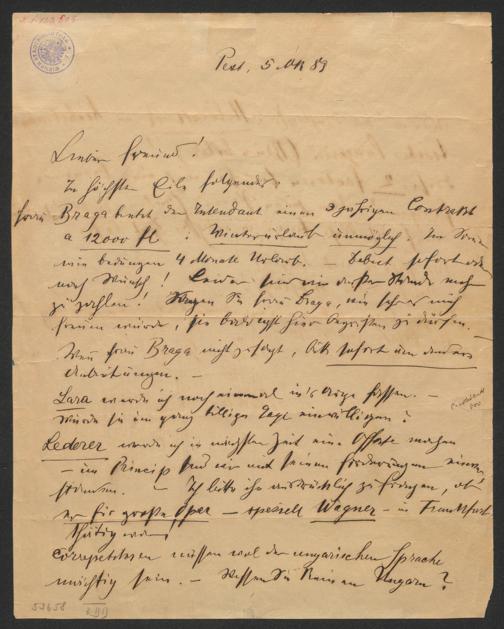 Pest, 5 Okt 89
Lieber Freund!
In höchster Eile folgendes:
Frau Braga bietet der Intendant einen 3 jährigen Contrakt
a 12000 fl. Winterurlaub unmöglich. Im Sommer
4 Monate Urlaub. – Debut sofort oder
nach Wunsch! Leider sind wir außer Stande mehr
zu zahlen! Sagen Sie Frau Braga, wie sehr es mich
freuen würde, sie hier begrüßen zu dürfen. –
Wenn Frau Braga nicht zusagt, bitte sofort um andere
Anbietungen. –
Lara werde ich noch einmal in's Auge fassen. –
Würde sie in ganz billige Gage einwilligen?
Lederer werde ich in nächster Zeit eine Offerte machen
– im Princip sind wir mit seinen Forderungen einver-
standen. – Ich bitte ihn ausdrücklich zu fragen, ob
er für große Oper – speziell Wagner – in Frankfurt
thätig war
Correpetitoren müssen wol der ungarischen Sprache
mächtig sein. – Wissen Sie keinen Ungarn?